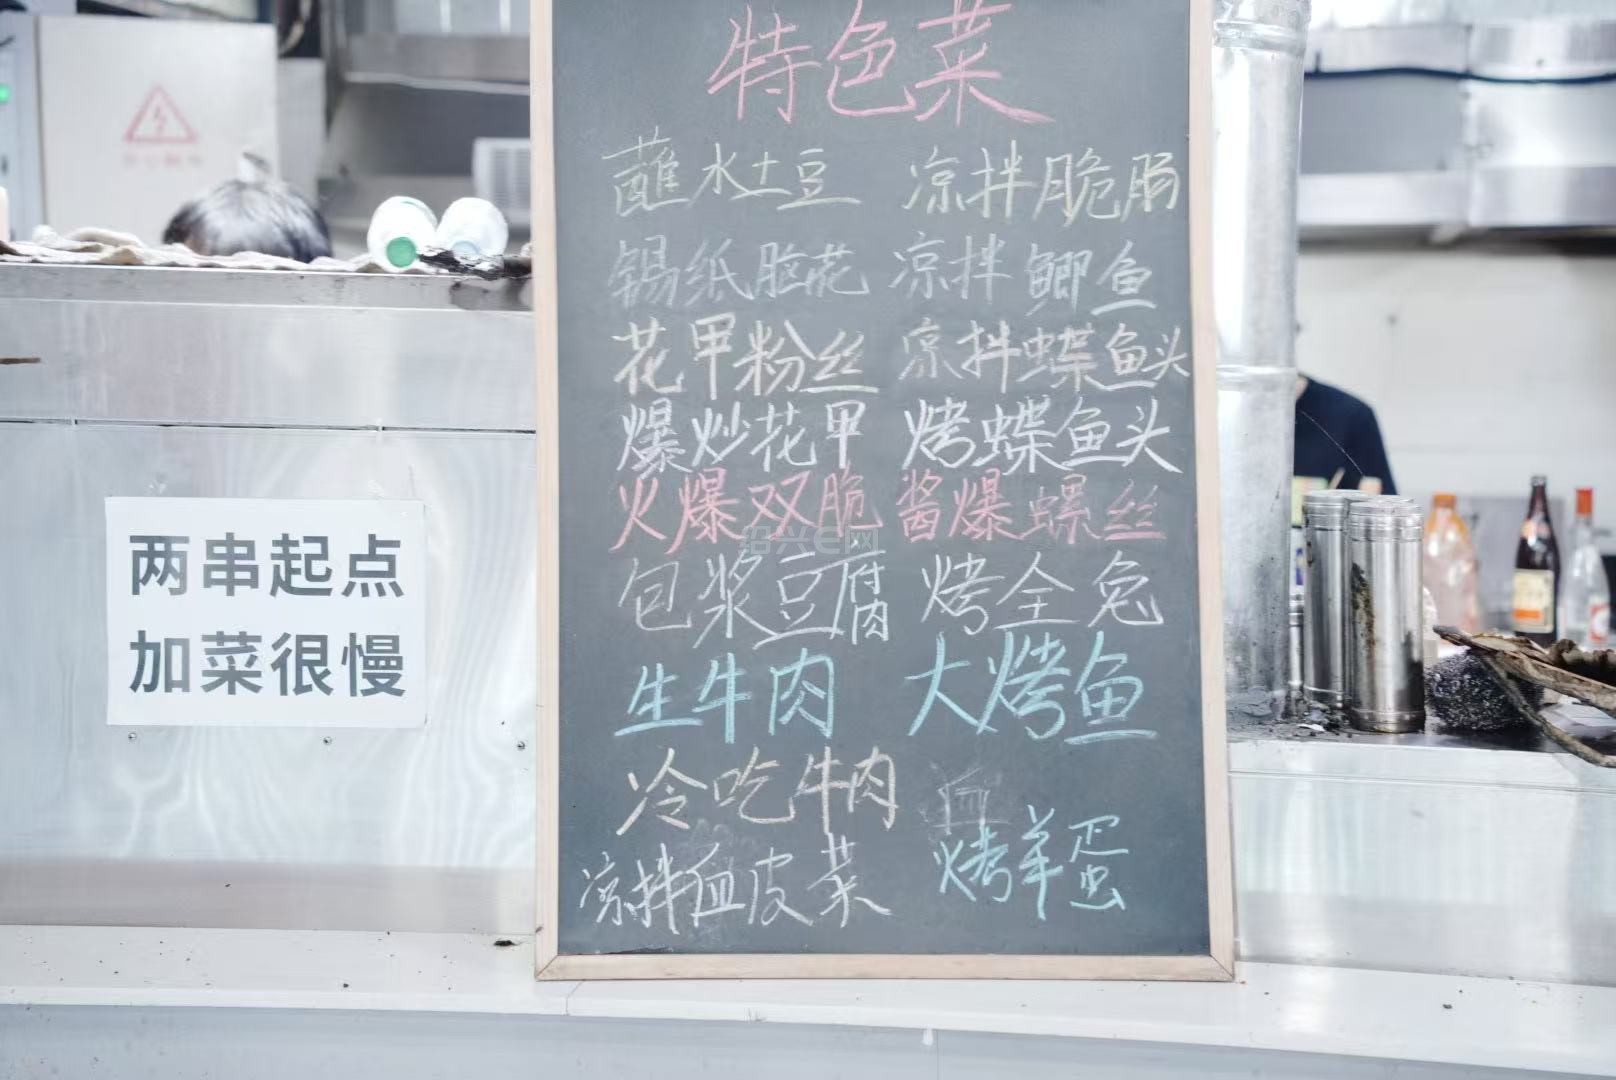 特色菜
蘸水土豆 凉拌脆肠
锡纸脑花 凉拌鲫鱼
花甲粉丝 凉拌蝶鱼头
爆炒花甲 烤蝶鱼头
火爆双脆 酱爆螺丝
包浆豆腐 烤全兔
生牛肉 大烤鱼
冷吃牛肉
烤羊蛋
凉拌血皮菜
两串起点
加菜很慢
绍兴E网